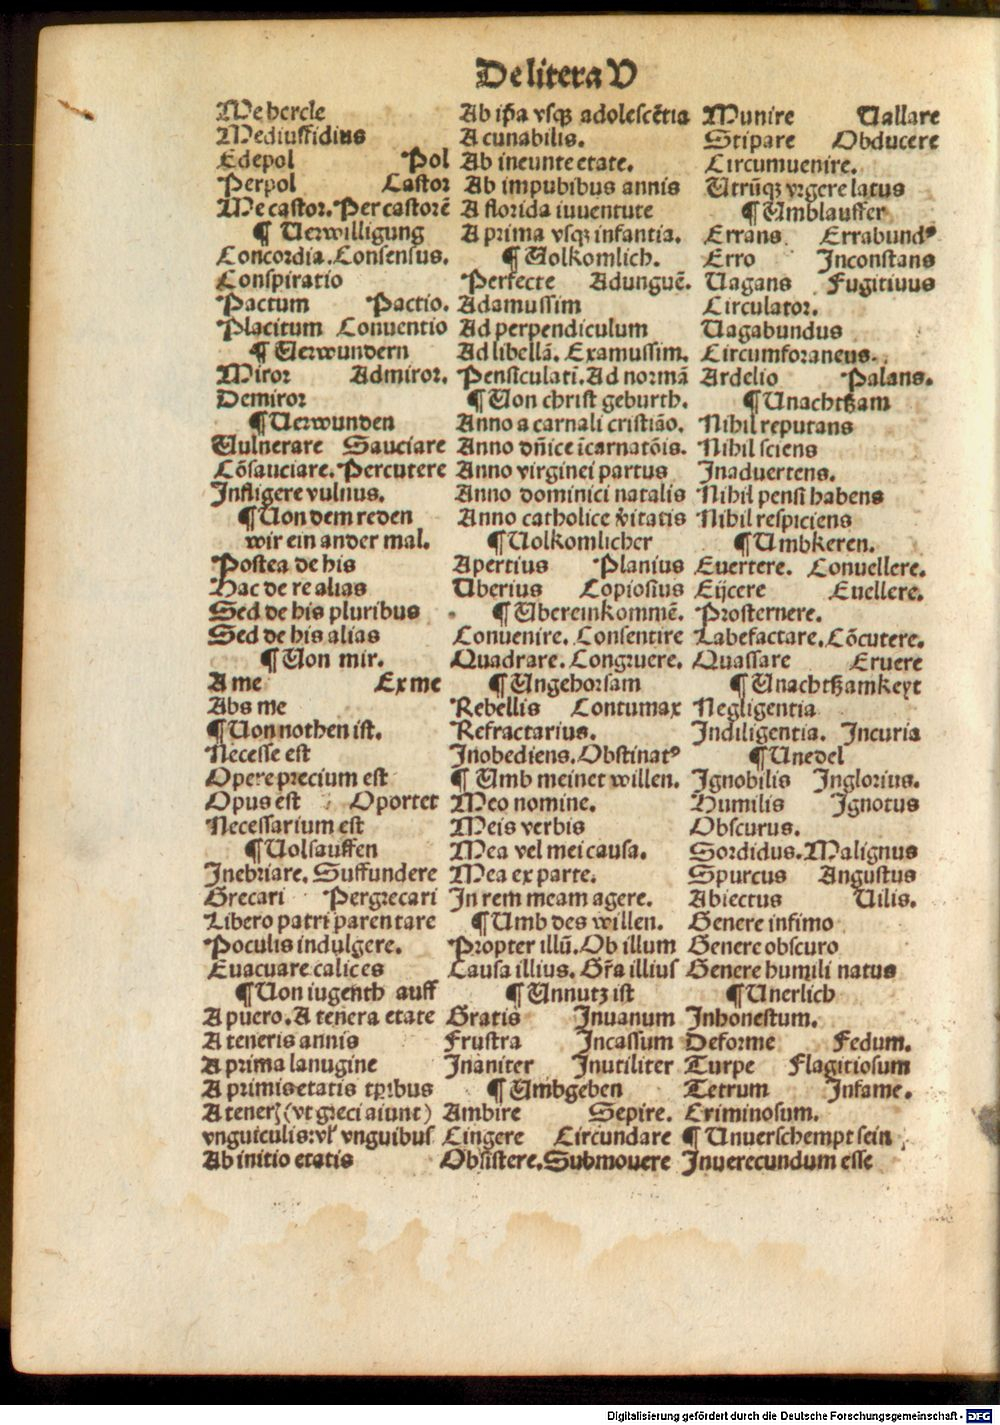 De litera V
Mehercle
Mediusfidius
Edepol Pol
Perpol Castor
Mecastor. Per castorē
¶ Verwilligung
Concordia. Consensus.
Conspiratio
Pactum Pactio.
Placitum Conuentio
¶ Verwundern
Miror Admiror.
Demiror
¶ Verwunden
Vulnerare Sauciare
Cōsauciare. Percutere
Infligere vulnus.
¶ Von dem reden
wir ein ander mal.
Postea de his
Hac de re alias
Sed de his pluribus
Sed de his alias
¶ Von mir.
A me Ex me
Abs me
¶ Von nothen ist.
Necesse est
Opere precium est
Opus est Oportet
Necessarium est
¶ Volsauffen
Inebriare. Suffundere
Grecari Pergrecari
Libero patri parentare
Poculis indulgere.
Euacuare calices
¶ Von iugenth auff
A puero. A tenera etate
A teneris annis
A prima lanugine
A primis etatis tꝑibus
A tenerꝭ (vt greci aiunt)
vnguiculis: vł vnguibus
Ab initio etatis
Ab ip̄a vsqꝫ adolescētia
A cunabilis.
Ab ineunte etate.
Ab impubibus annis
A florida iuuentute
A prima vsqꝫ infantia.
¶ Volkomlich.
Perfecte Adunguē.
Adamussim
Ad perpendiculum
Ad libellā. Examussim.
Pensiculatī. Ad normā
¶ Von christ geburth.
Anno a carnali cristiāo.
Anno dn̄ice īcarnatōis.
Anno virginei partus
Anno dominici natalis
Anno catholice v̄itatis
¶ Volkomlicher
Apertius Planius
Vberius Copiosius
¶ Vbereinkommē.
Conuenire. Consentire
Quadrare. Congruere.
¶ Vngehorsam
Rebellis Contumax
Refractarius.
Inobediens. Obstinatꝰ
¶ Vmb meinet willen.
Meo nomine.
Meis verbis
Mea vel mei causa.
Mea ex parte.
In rem meam agere.
¶ Vmb des willen.
Propter illū. Ob illum
Causa illius. Gr̄a illius
¶ Vnnutz ist
Gratis Inuanum
Frustra Incassum
Inaniter Inutiliter
¶ Vmbgeben
Ambire Sepire.
Cingere Circundare
Obsistere. Submouere
Munire Vallare
Stipare Obducere
Circumuenire.
Vtrūqꝫ vrgere latus
¶ Vmblauffer
Errans Errabundꝰ
Erro Inconstans
Vagans Fugitiuus
Circulator.
Vagabundus
Circumforaneus.
Ardelio Palans.
¶ Vnachtßam
Nihil reputans
Nihil sciens
Inaduertens.
Nihil pensi habens
Nihil respiciens
¶ Vmbkeren.
Euertere. Conuellere.
Eijcere Euellere.
Prosternere.
Labefactare. Cōcutere.
Quassare Eruere
¶ Vnachtßamkeyt
Negligentia
Indiligentia. Incuria
¶ Vnedel
Ignobilis Inglorius.
Humilis Ignotus
Obscurus.
Sordidus. Malignus
Spurcus Angustus
Abiectus Vilis.
Genere infimo
Genere obscuro
Genere humili natus
¶ Vnerlich
Inhonestum.
Deforme Fedum.
Turpe Flagitiosum
Tetrum Infame.
Criminosum.
¶ Vnuerschempt sein
Inuerecundum esse
Digitalisierung gefördert durch die Deutsche Forschungsgemeinschaft - DFG